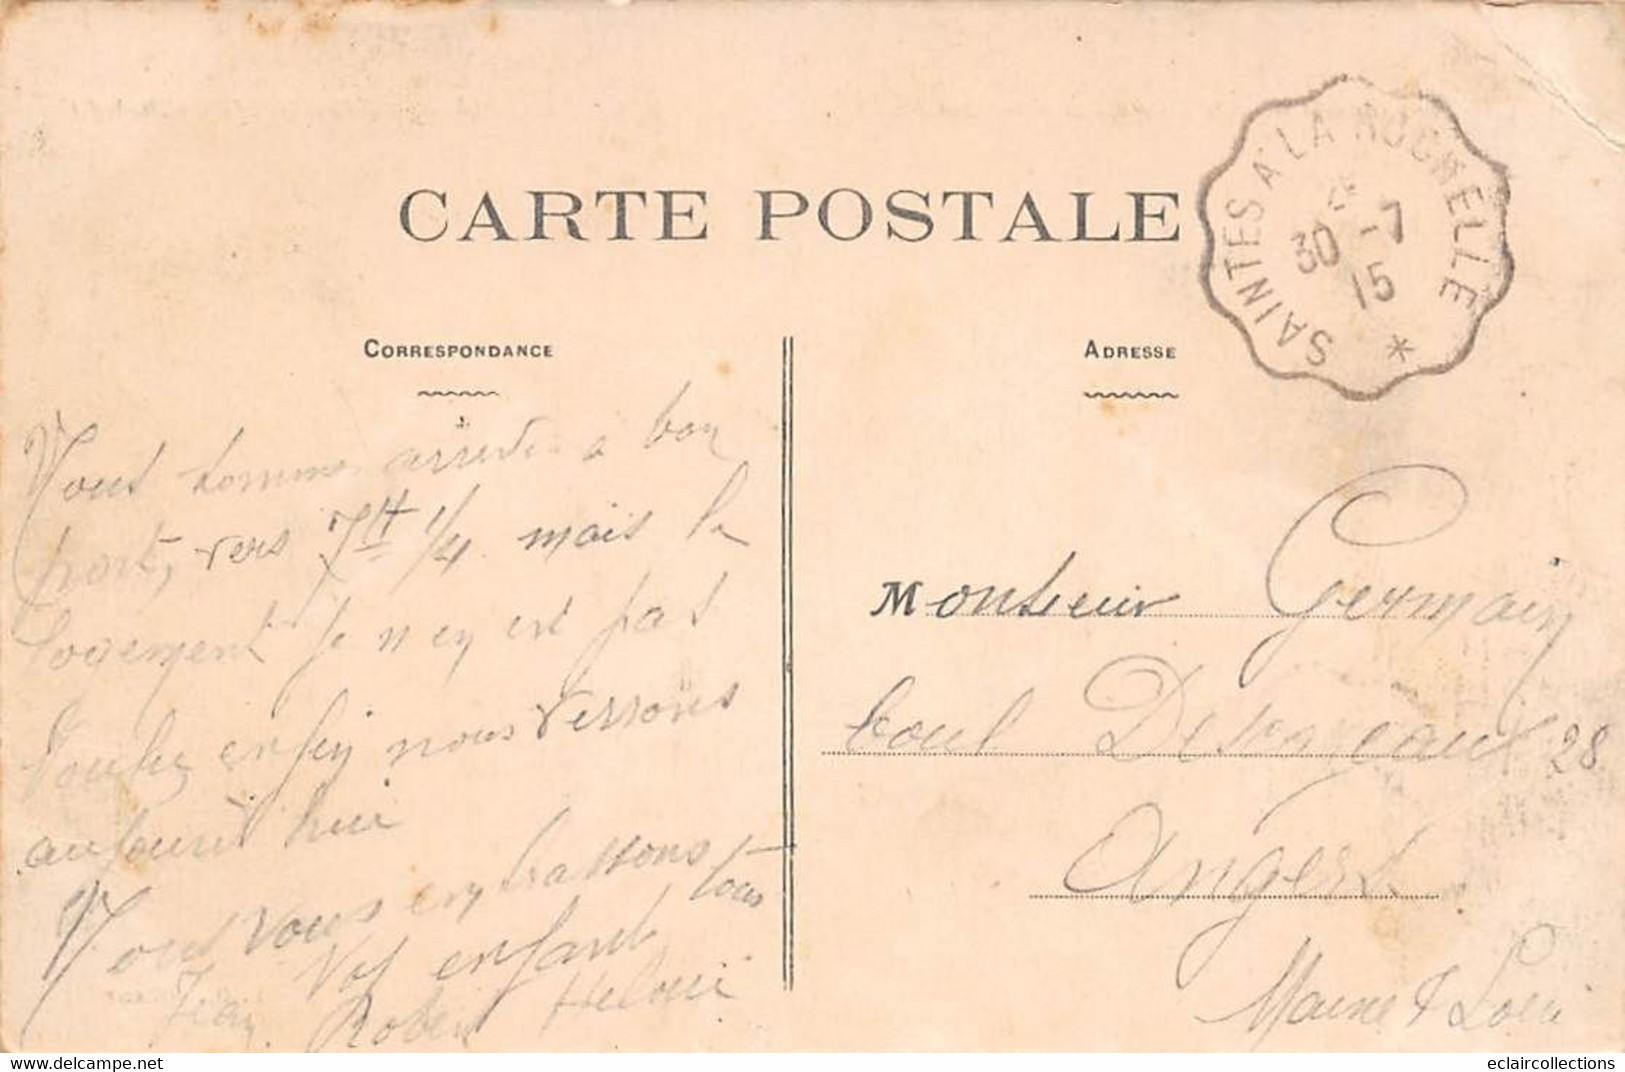 CARTE POSTALE
SAINTES A LA ROCHELLE
30 -7
15
CORRESPONDANCE
ADRESSE
Nous sommes arrivés a bon
port, vers 7H 1/4 mais le
logement je n'en est pas
enfin nous verrons
aujourd'hui
Nous vous embrassons tous
Vos enfants
Jean Robert Heloïse
Monsieur Germain
boul Desgreaux 28
Angers
Maine & Loire
eclaircollections